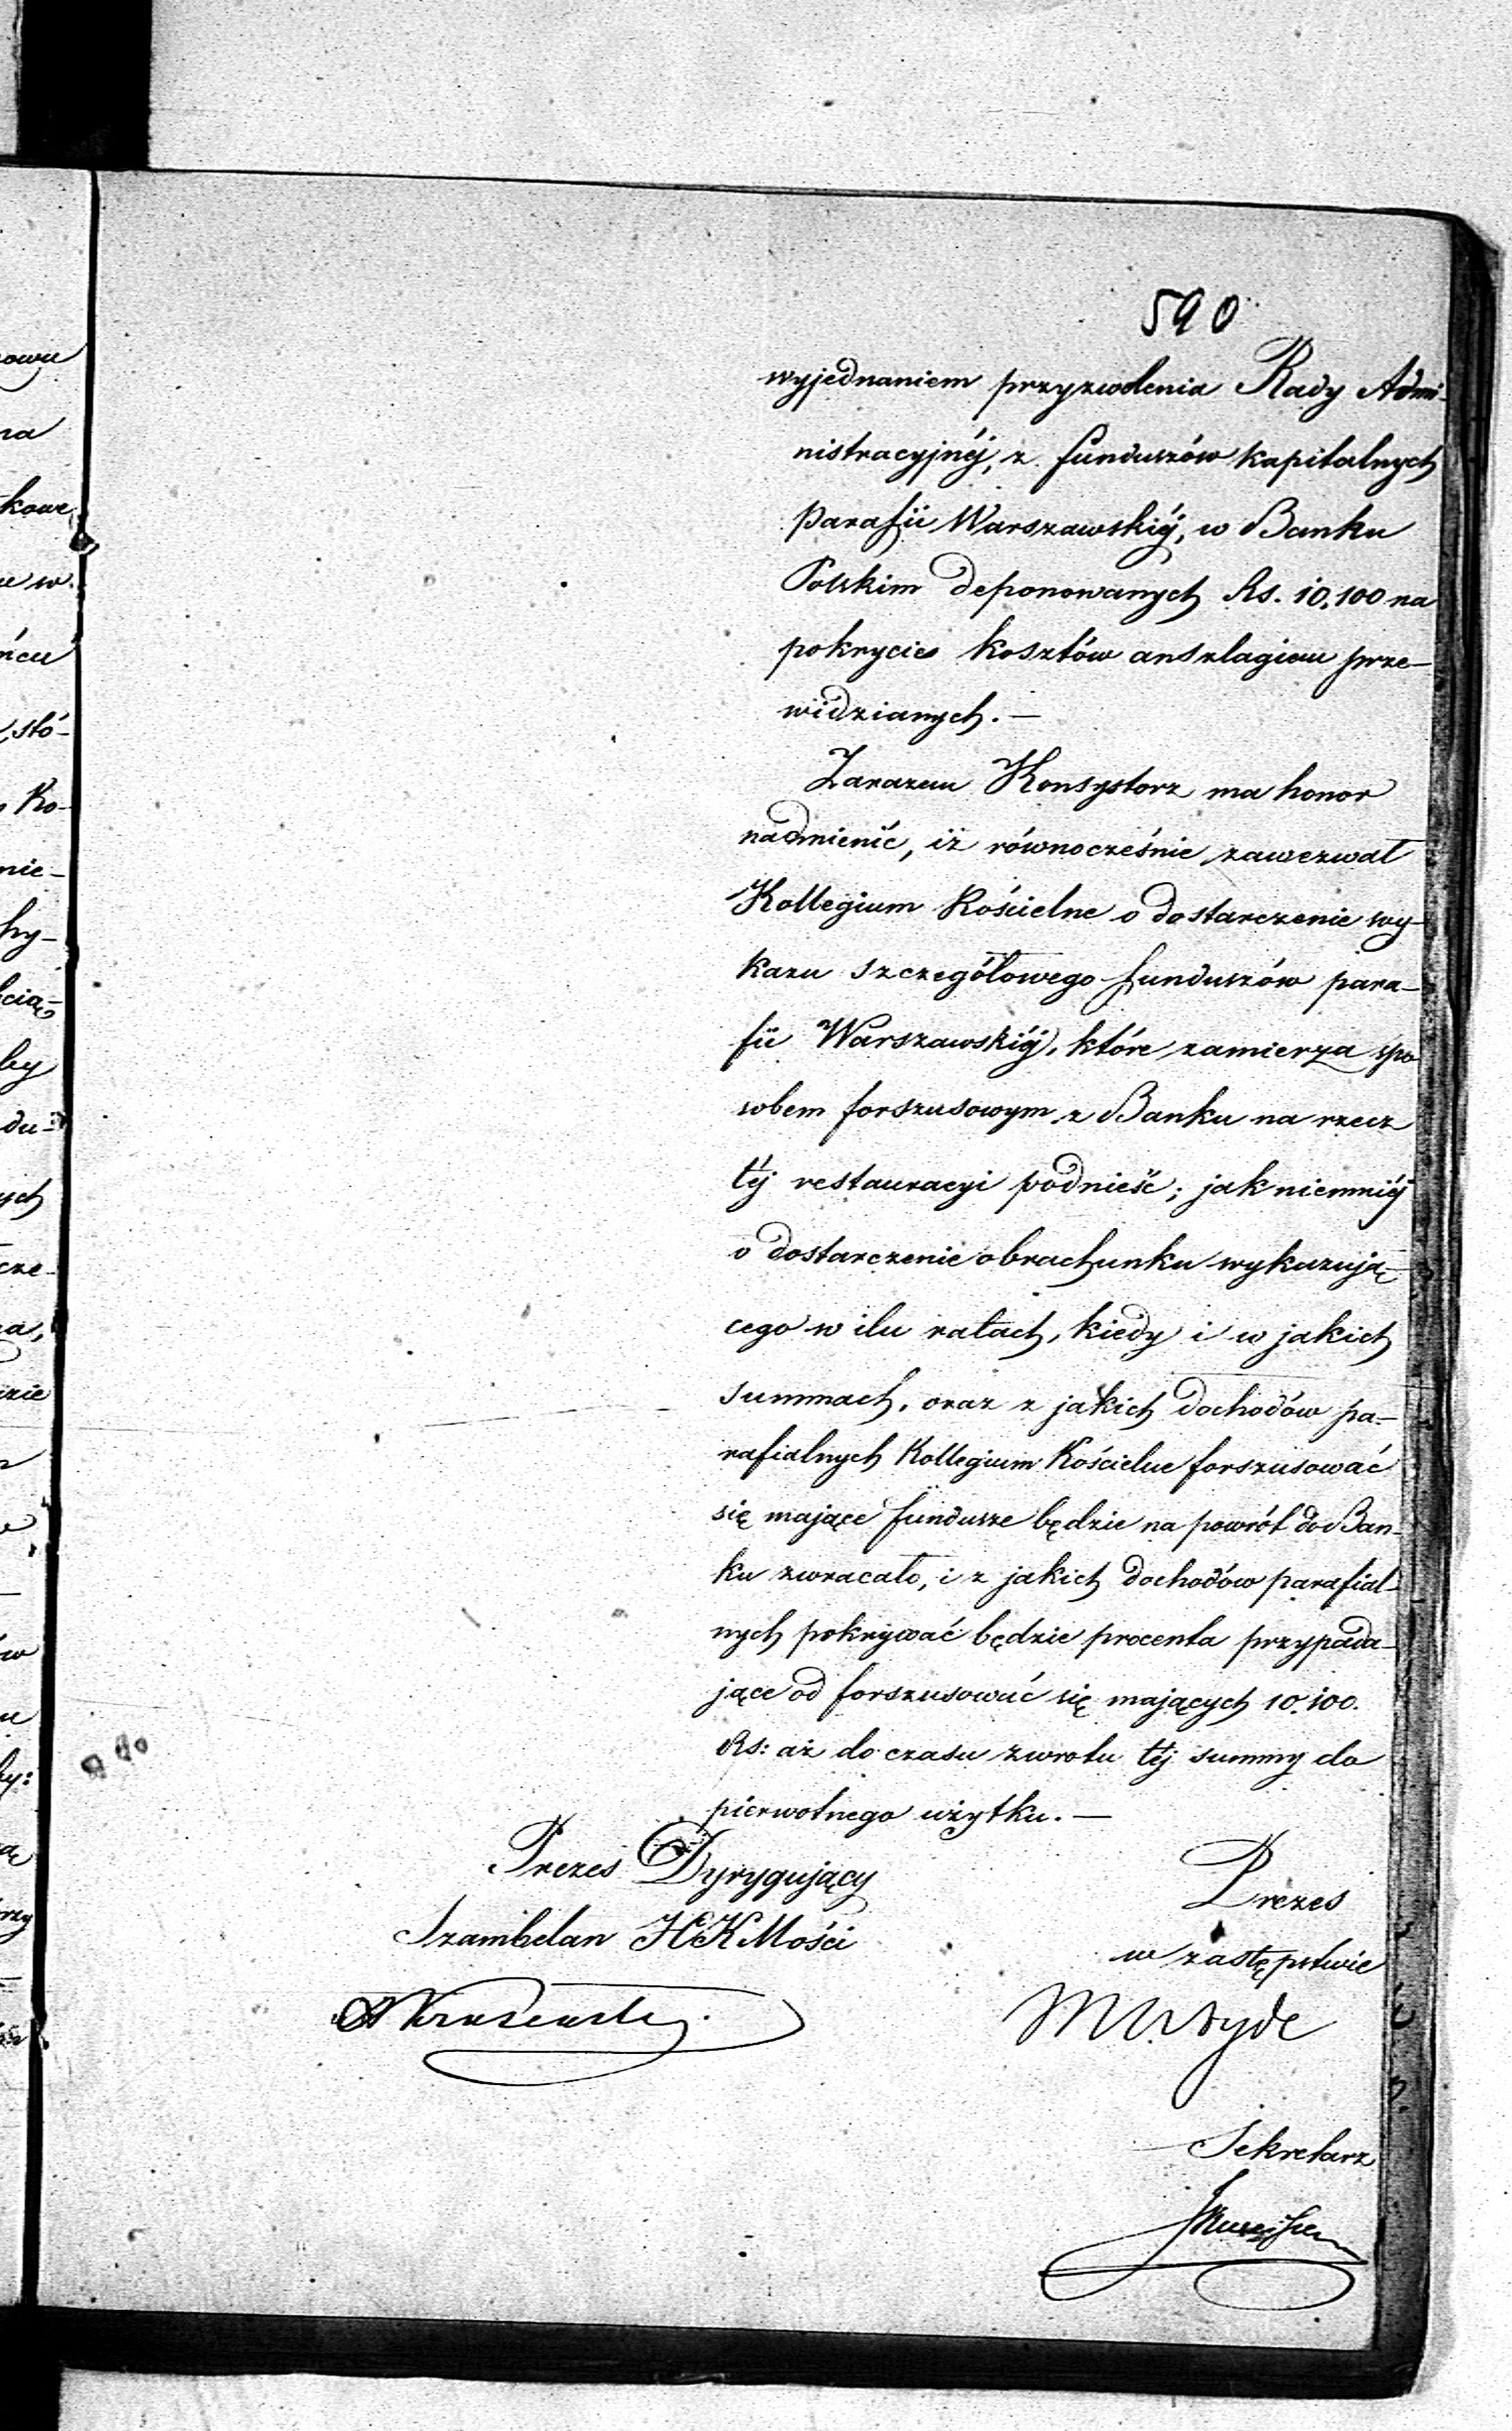 590
wyjednaniem przyzwolenia Rady Admi-
nistracyjnéj, z funduszów kapitalnych
parafii Warszawskiéj, w Banku
Polskim deponowanych Rs. 10,100 na
pokrycie kosztów anszlagiem prze-
widzianych. —
Zarazem Konsystorz ma honor
nadmienić, iż równocześnie zawezwał
Kollegium Kościelne o dostarczenie wy-
kazu szczegółowego funduszów para-
fii Warszawskiéj, które zamierza spo
sobem forszusowym z Banku na rzecz
téj restauracyi podnieść; jak niemniéj
o dostarczenie obrachunku wykazują-
cego w ilu ratach, kiedy i w jakich
summach, oraz z jakich dochodów pa-
rafialnych Kollegium Kościelne forszusować
się mające fundusze będzie na powrót do Ban-
ku zwracało, i z jakich dochodów parafial-
nych pokrywać będzie procenta przypada-
jące od forszusować się mających 10.100.
Rs: aż do czasu zwrotu téj summy do
pierwotnego użytku. —
Prezes Dyrygujący
Szambelan JCKMości
Prezes
w zastępstwie
Sekretarz